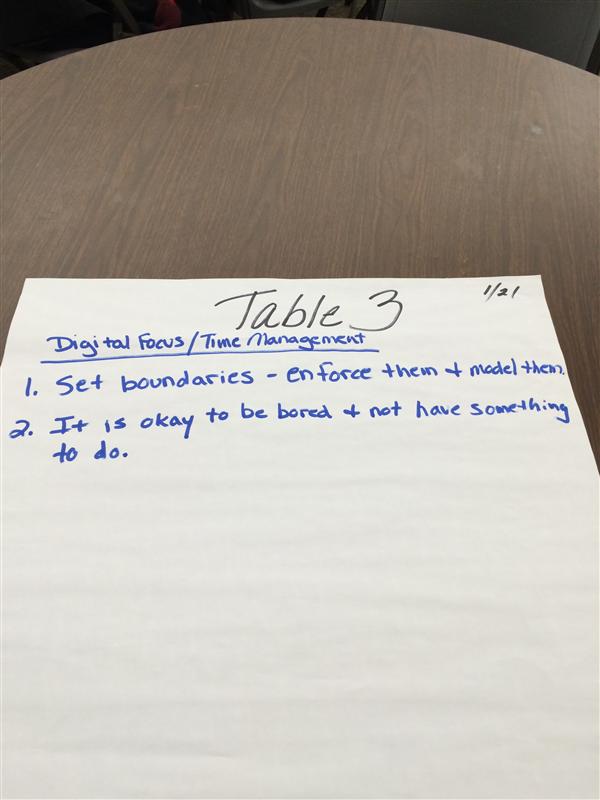 Table 3
1/21
Digital Focus/Time Management
1. Set boundaries - enforce them + model them.
2. It is okay to be bored + not have something
to do.